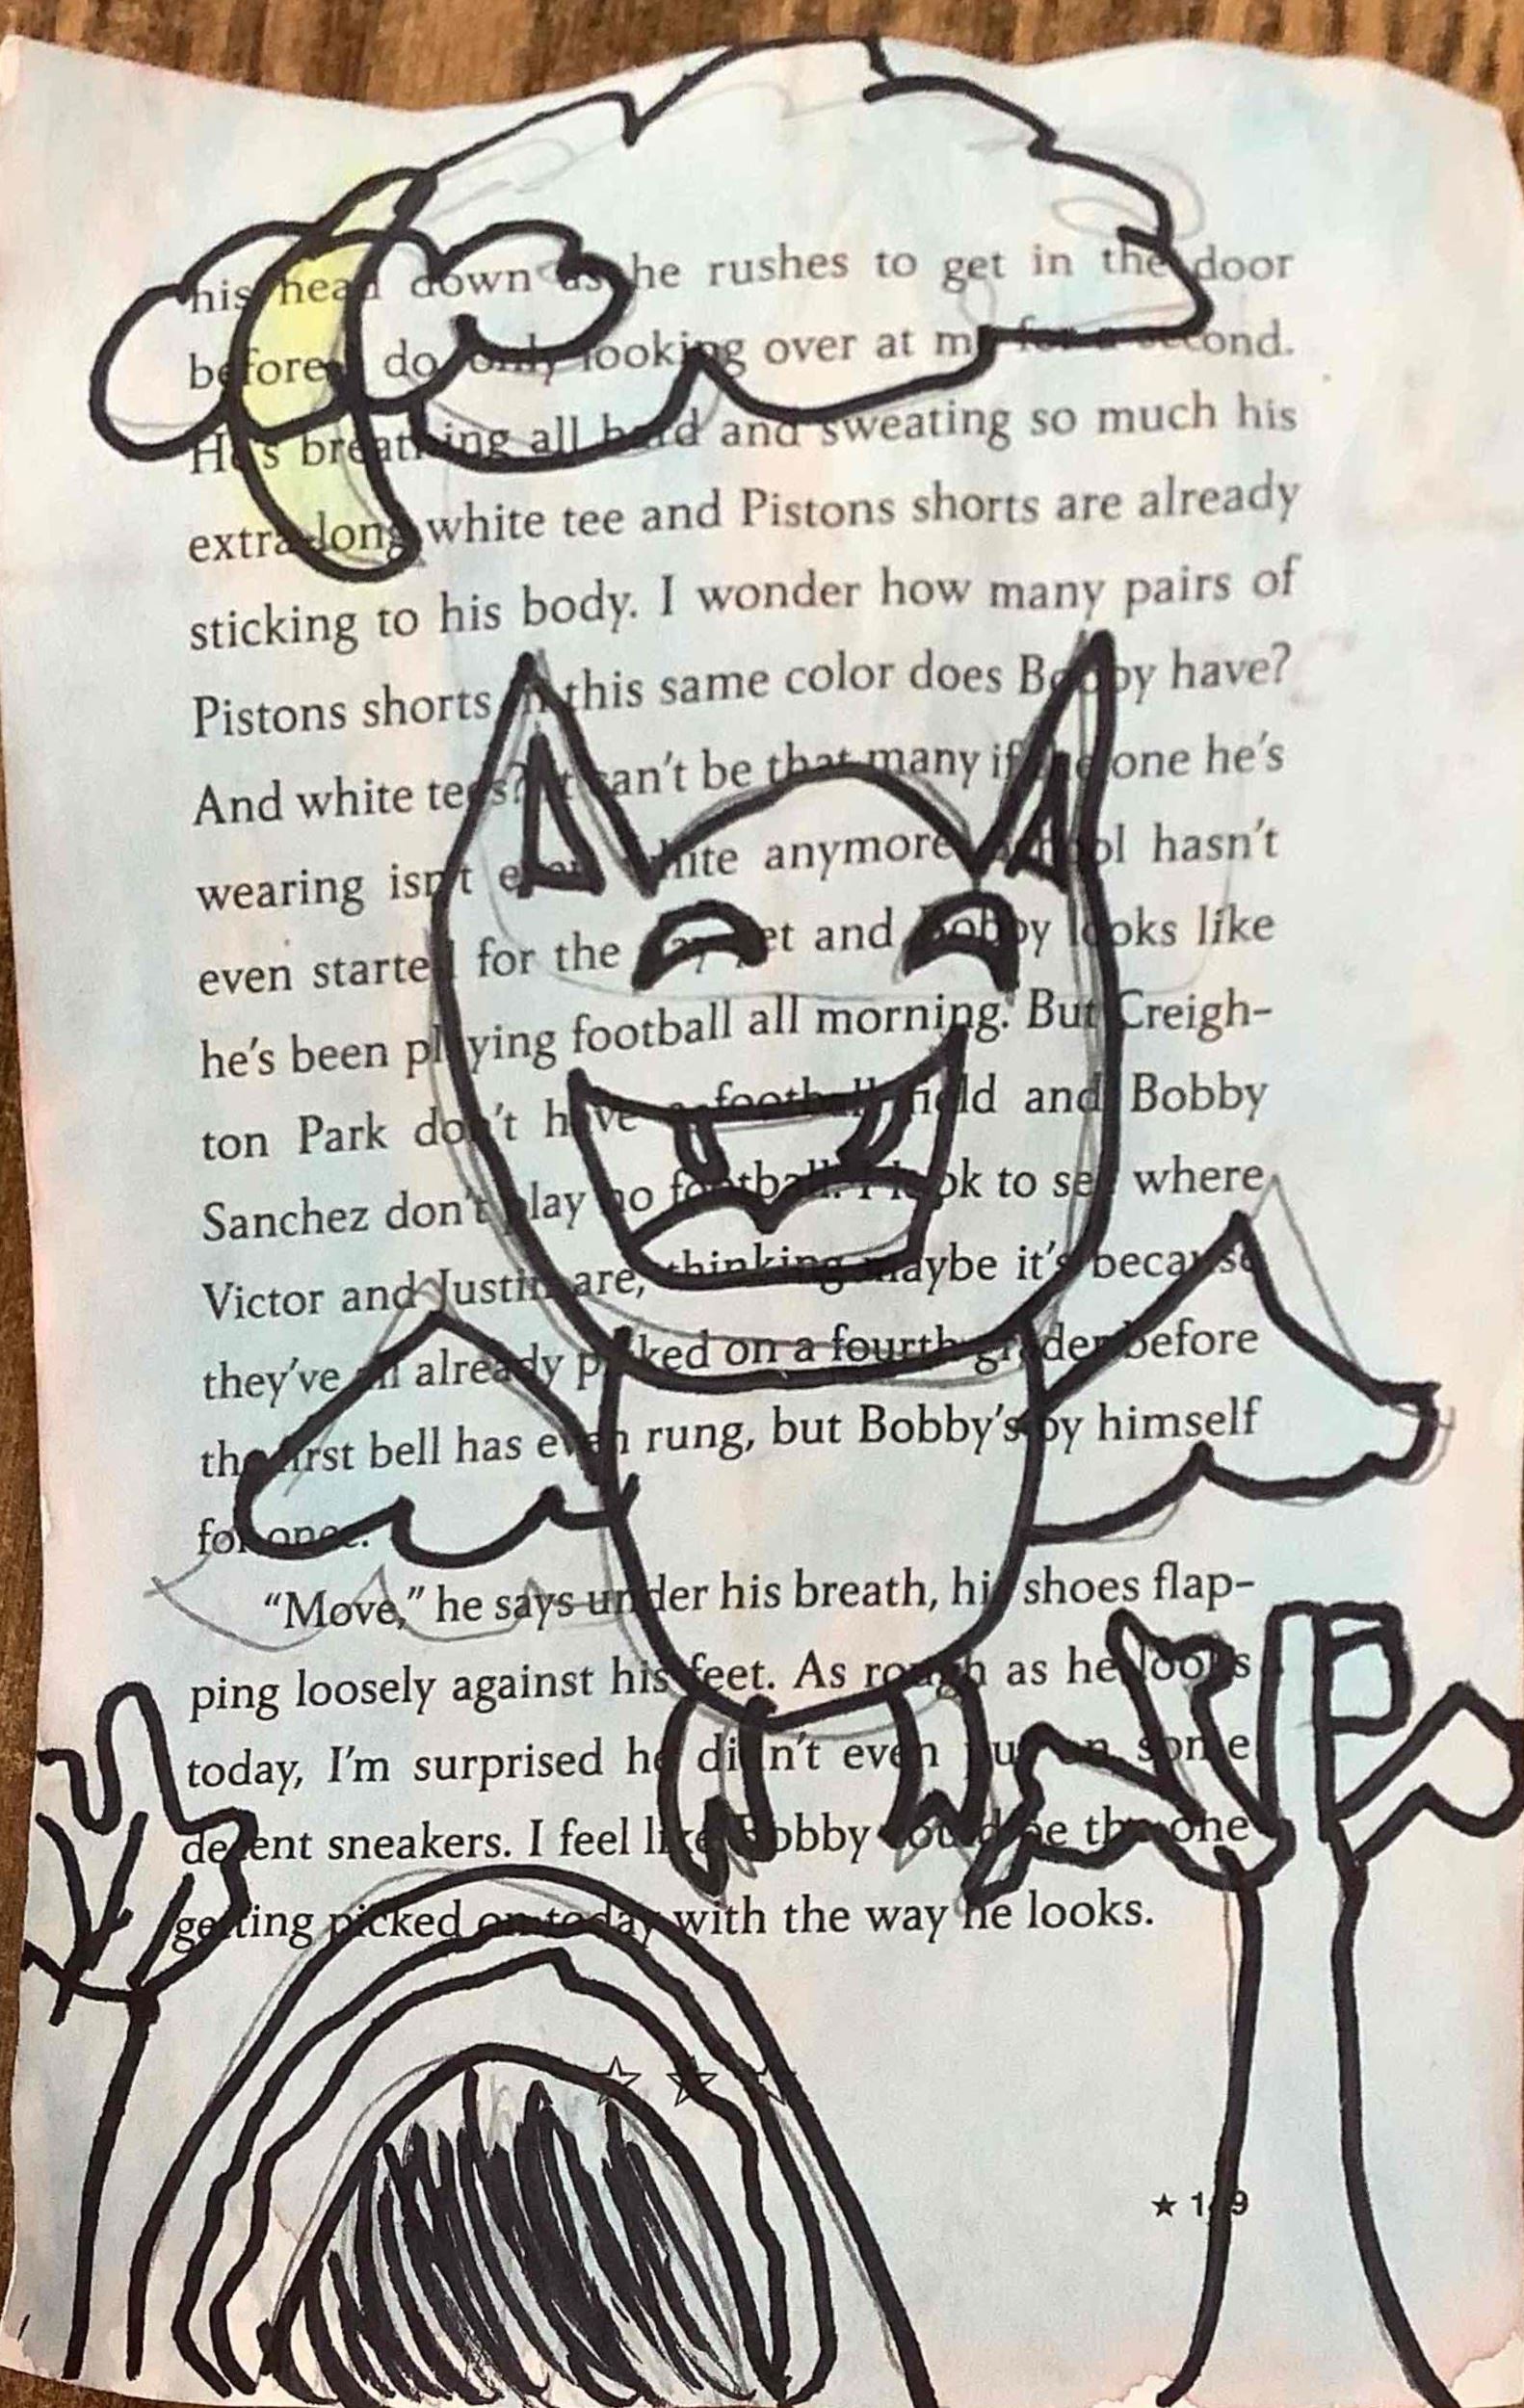 his head down as he rushes to get in the door
before I do, only looking over at me for a second.
He's breathing all hard and sweating so much his
extra-long white tee and Pistons shorts are already
sticking to his body. I wonder how many pairs of
Pistons shorts in this same color does Bobby have?
And white tees? It can't be that many if the one he's
wearing isn't even white anymore. School hasn't
even started for the day yet and Bobby looks like
he's been playing football all morning. But Creigh-
ton Park don't have a football field and Bobby
Sanchez don't play no football. I look to see where
Victor and Justin are, thinking maybe it's because
they've all already picked on a fourth grader before
the first bell has even rung, but Bobby's by himself
for once.
“Move,” he says under his breath, his shoes flap-
ping loosely against his feet. As rough as he looks
today, I'm surprised he didn't even put on some
decent sneakers. I feel like Bobby could be the one
getting picked on today with the way he looks.
☆ ☆ ☆
★ 149